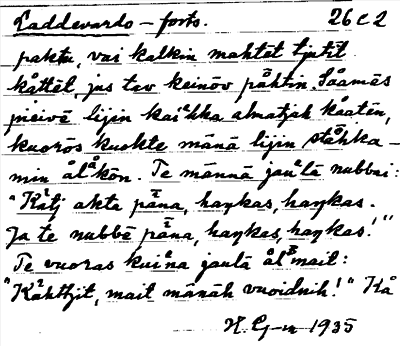 Laddevardo – forts. 26 C 2
paktu, vai kalkin mahtēt tjutit
kåttēt, jus tav keinōv påhtin. Såamās
pieivē lijin kaihka almatjah kåatēn,
kuorōs kuokte mānā lijin ståhka–
min ålåkōn. Te männä jaulā nubbai:
"Kātj akta pāna, haykas, haykas.
Ja te nubbē pāna, haykas, haykas!"
Te vuoras kuina jaulā ålmait:
"Kāhttjit, mait mānāh vuoidnih!" Kå
H. G–m 1935